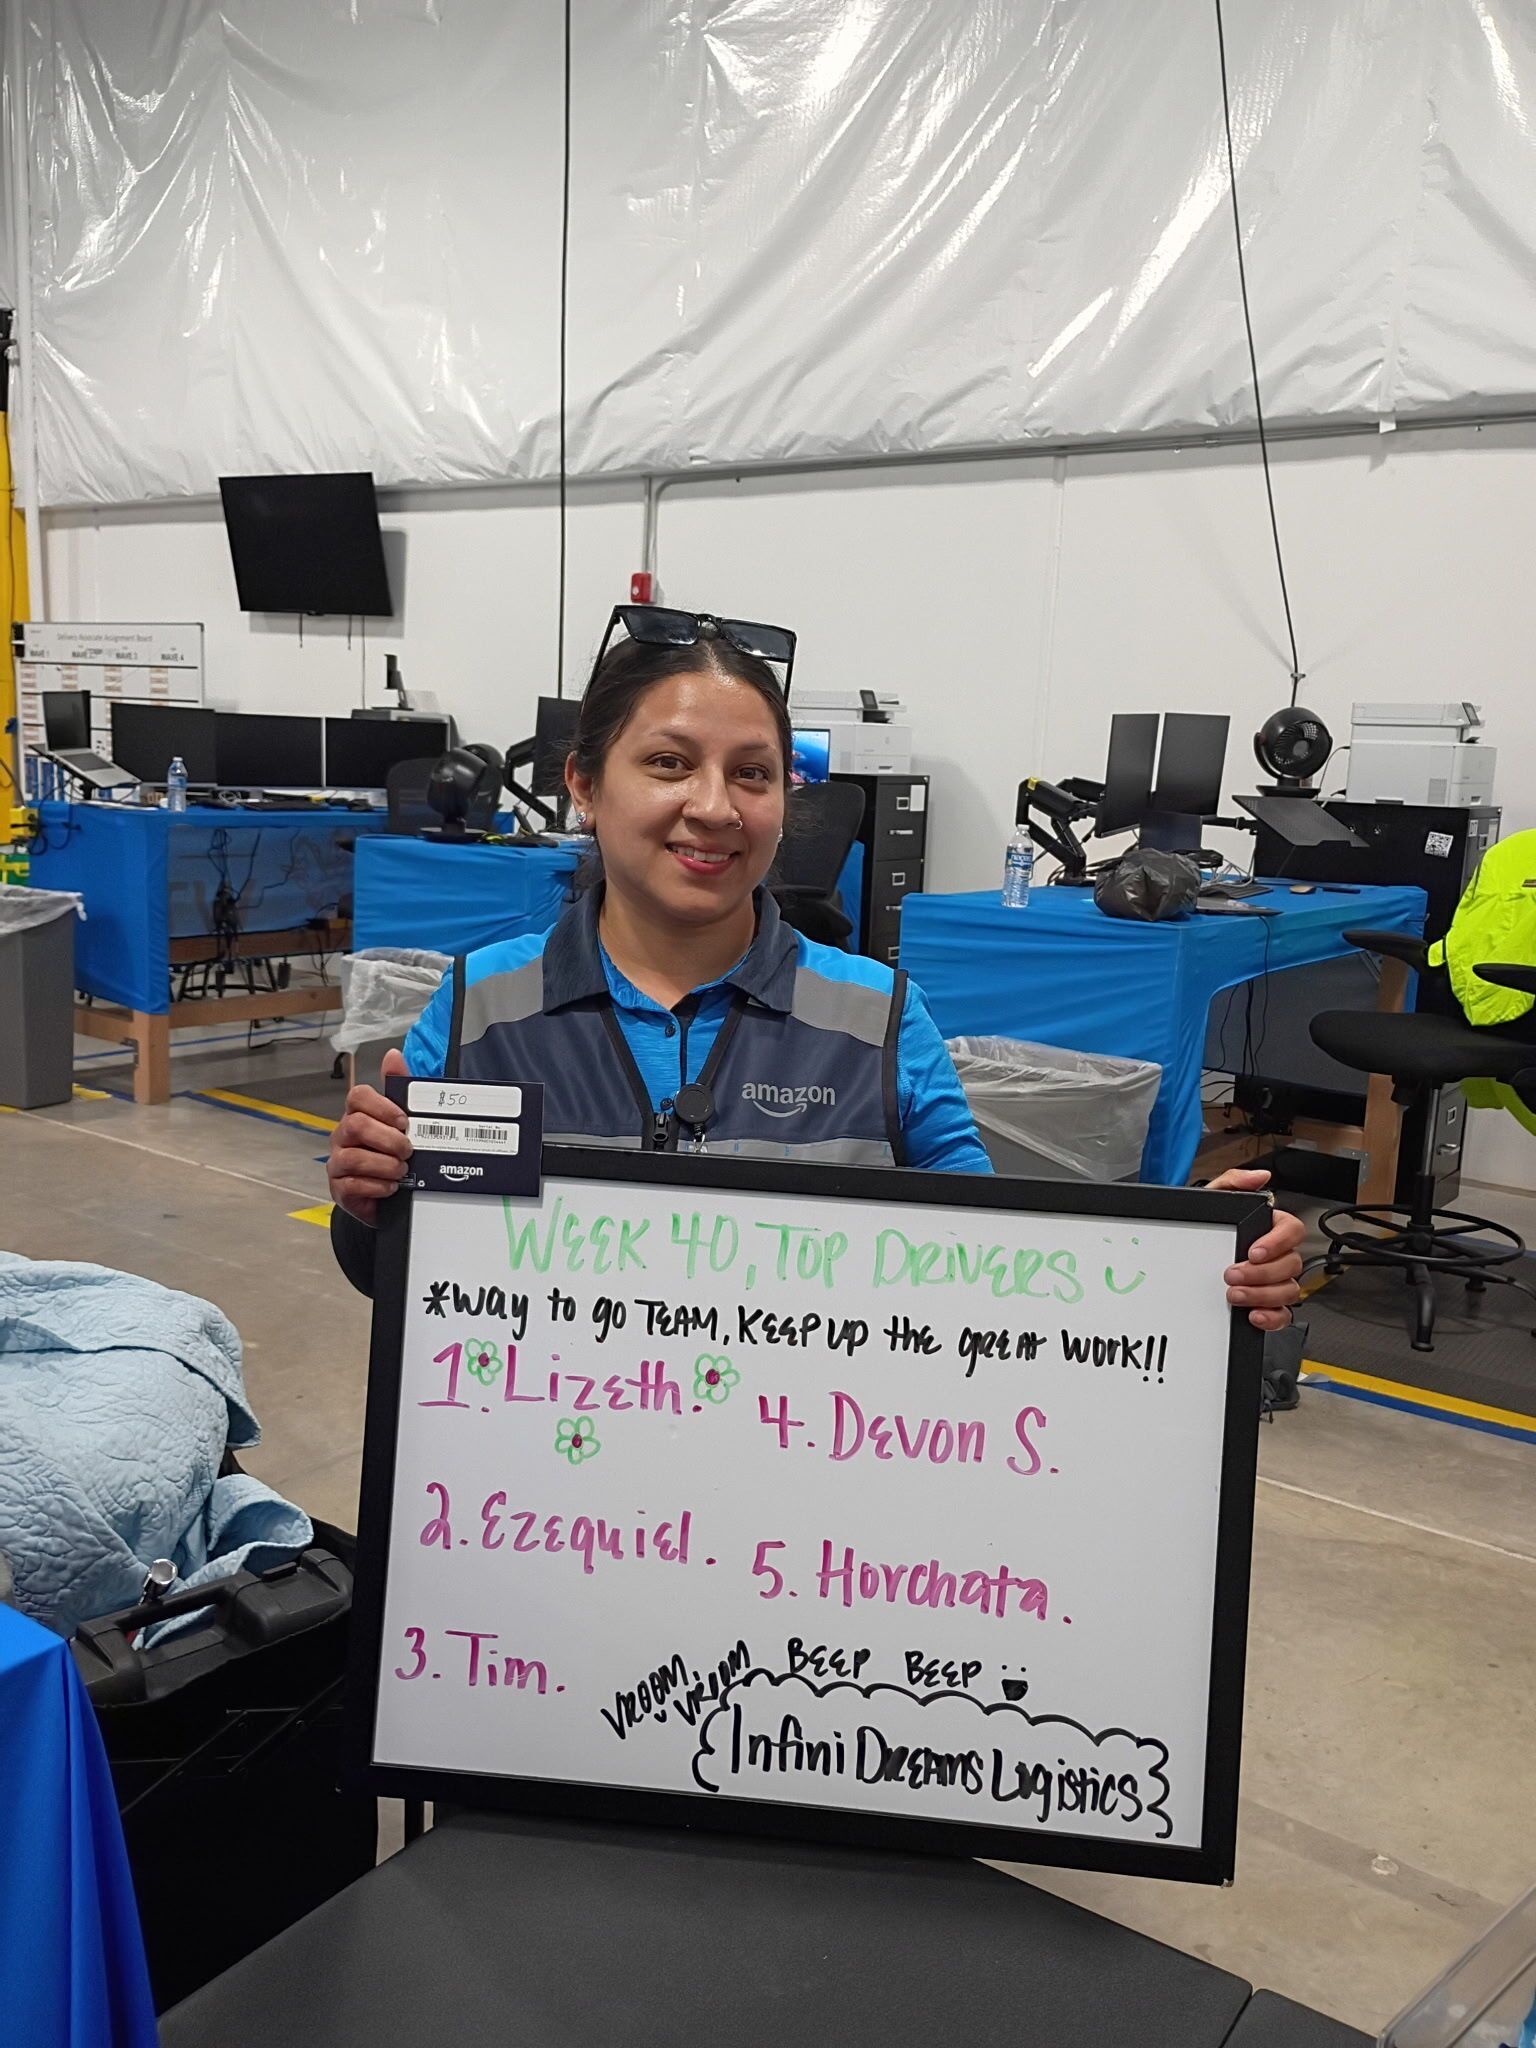 Delivery Associate Assignment Board
WAVE 1
WAVE 3
WAVE 4
amazon
$50
Serial No.
amazon
WEEK 40, TOP DRIVERS
*Way to go TEAM, KEEP UP the GREAT WORK!!
1. Lizeth.
2. Ezequiel.
3. Tim.
4. Devon S.
5. Horchata.
VROOM, VROOM BEEP BEEP
{Infini DREAMS Logistics}